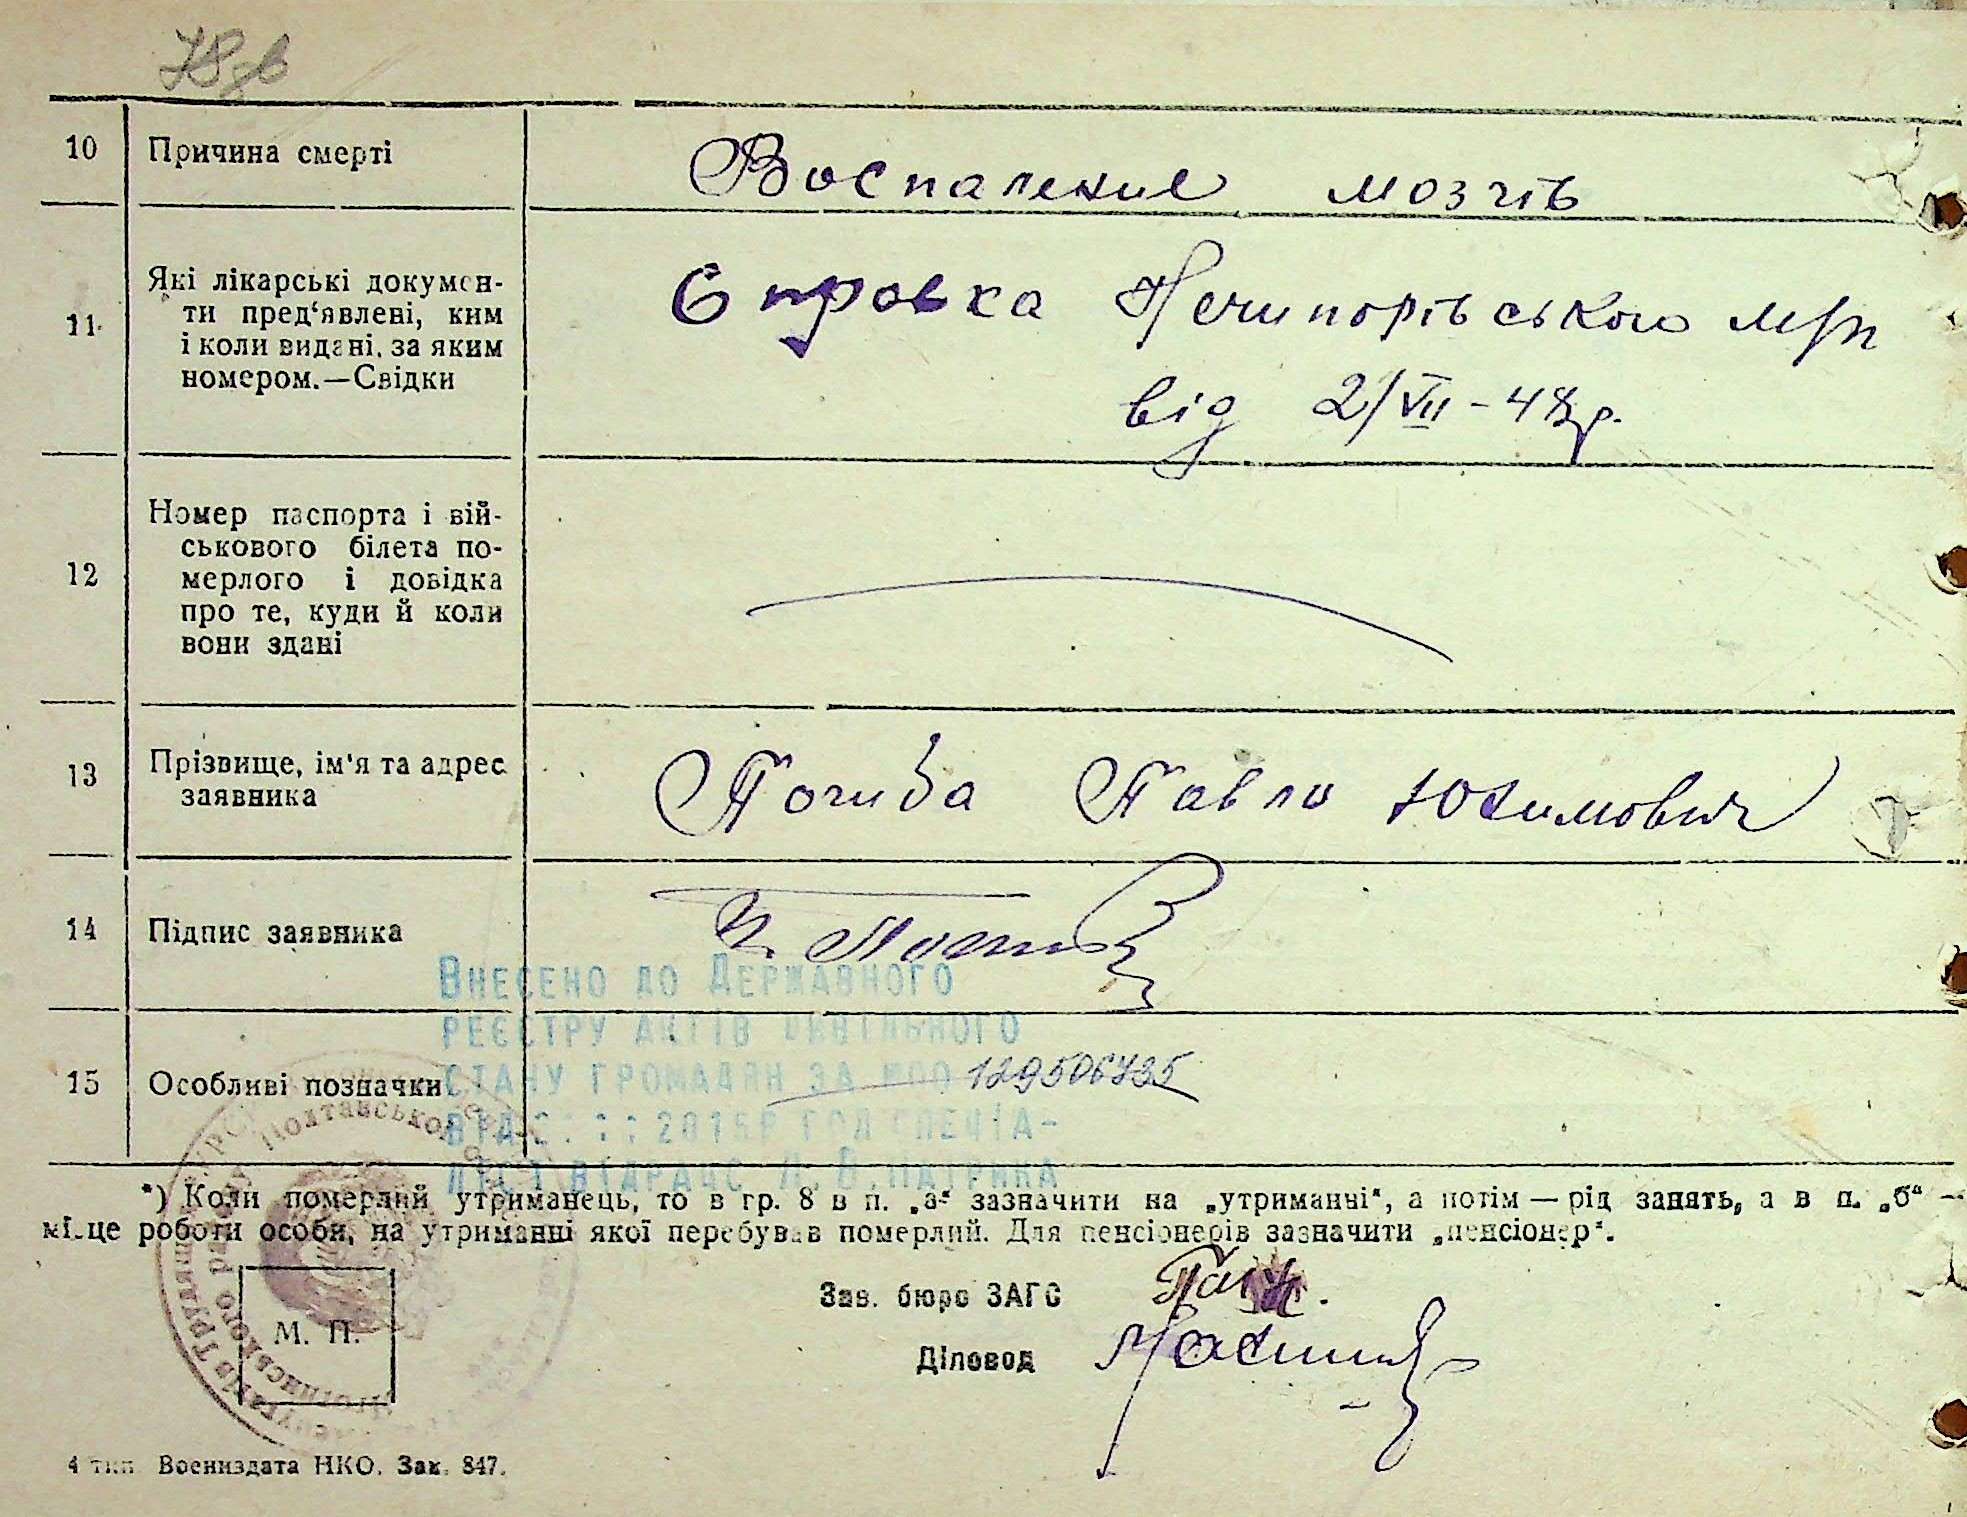 10 Причина смерті Воспаление мозгів
11 Які лікарські докумен-
ти пред‘явлені, ким
і коли видані, за яким
номером.—Свідки
Справка Нечипорівського мрп
від 2/VII-48р.
12 Номер паспорта і вій-
ськового білета по-
мерлого і довідка
про те, куди й коли
вони здані
13 Прізвище, ім‘я та адрес
заявника
Погиба Павло Юхимович
14 Підпис заявника
15 Особливі позначки
Внесено до Державного
реєстру актів цивільного
стану громадян за №00 129506735
*) Коли померлий утриманець, то в гр. 8 в п. „а“ зазначити на „утриманні“, а потім — рід занять, а в п. „б“ —
місце роботи особи, на утриманні якої перебував померлий. Для пенсіонерів зазначити „пенсіонер“.
Зав. бюро ЗАГС
Діловод
М. П.
4 тип. Воениздата НКО. Зак. 847.